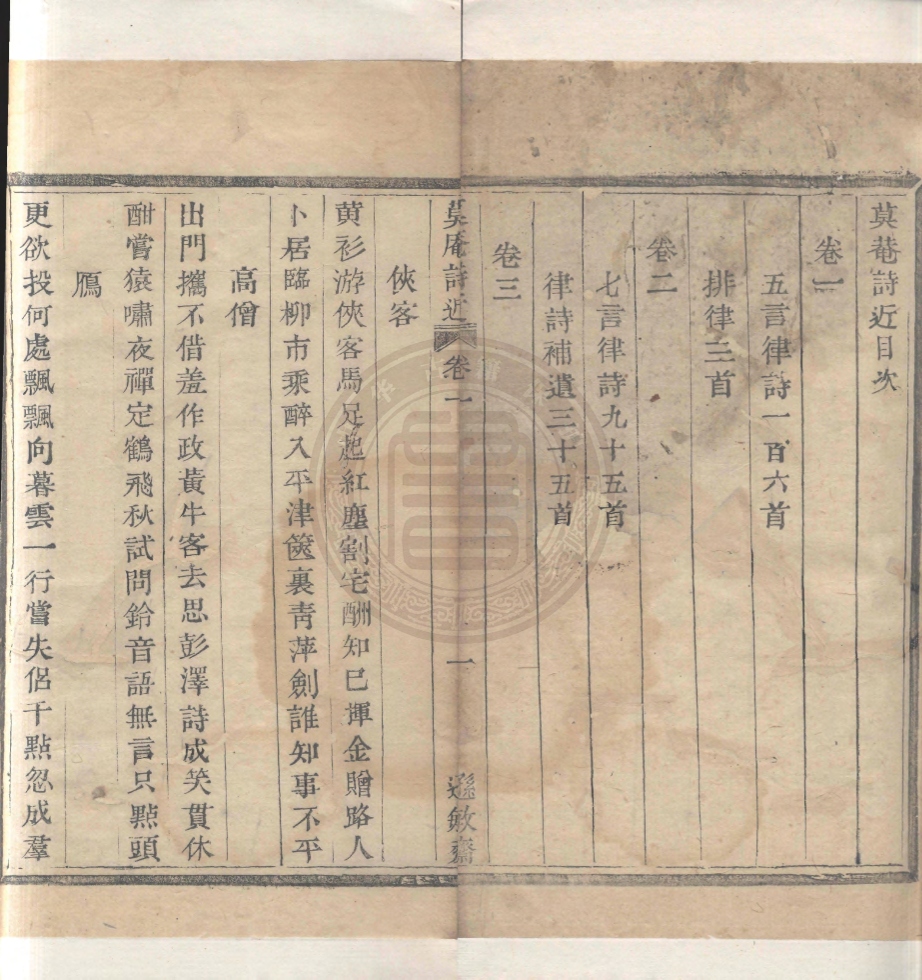 莫菴詩近目次
卷一
五言律詩一百六首
排律三首
卷二
七言律詩九十五首
律詩補遺三十五首
卷三
莫庵詩近 卷一 一 遜敏齋
俠客
黄衫游俠客馬足起紅塵割宅酬知已揮金贈路人
卜居臨柳市乘醉入平津篋裏靑萍劍誰知事不平
高僧
出門攜不借羞作政黄牛客去思彭澤詩成笑貫休
酣嘗猿嘯夜禪定鶴飛秋試問鈴音語無言只點頭
鴈
更欲投何處飄飄向暮雲一行嘗失侣千點忽成羣